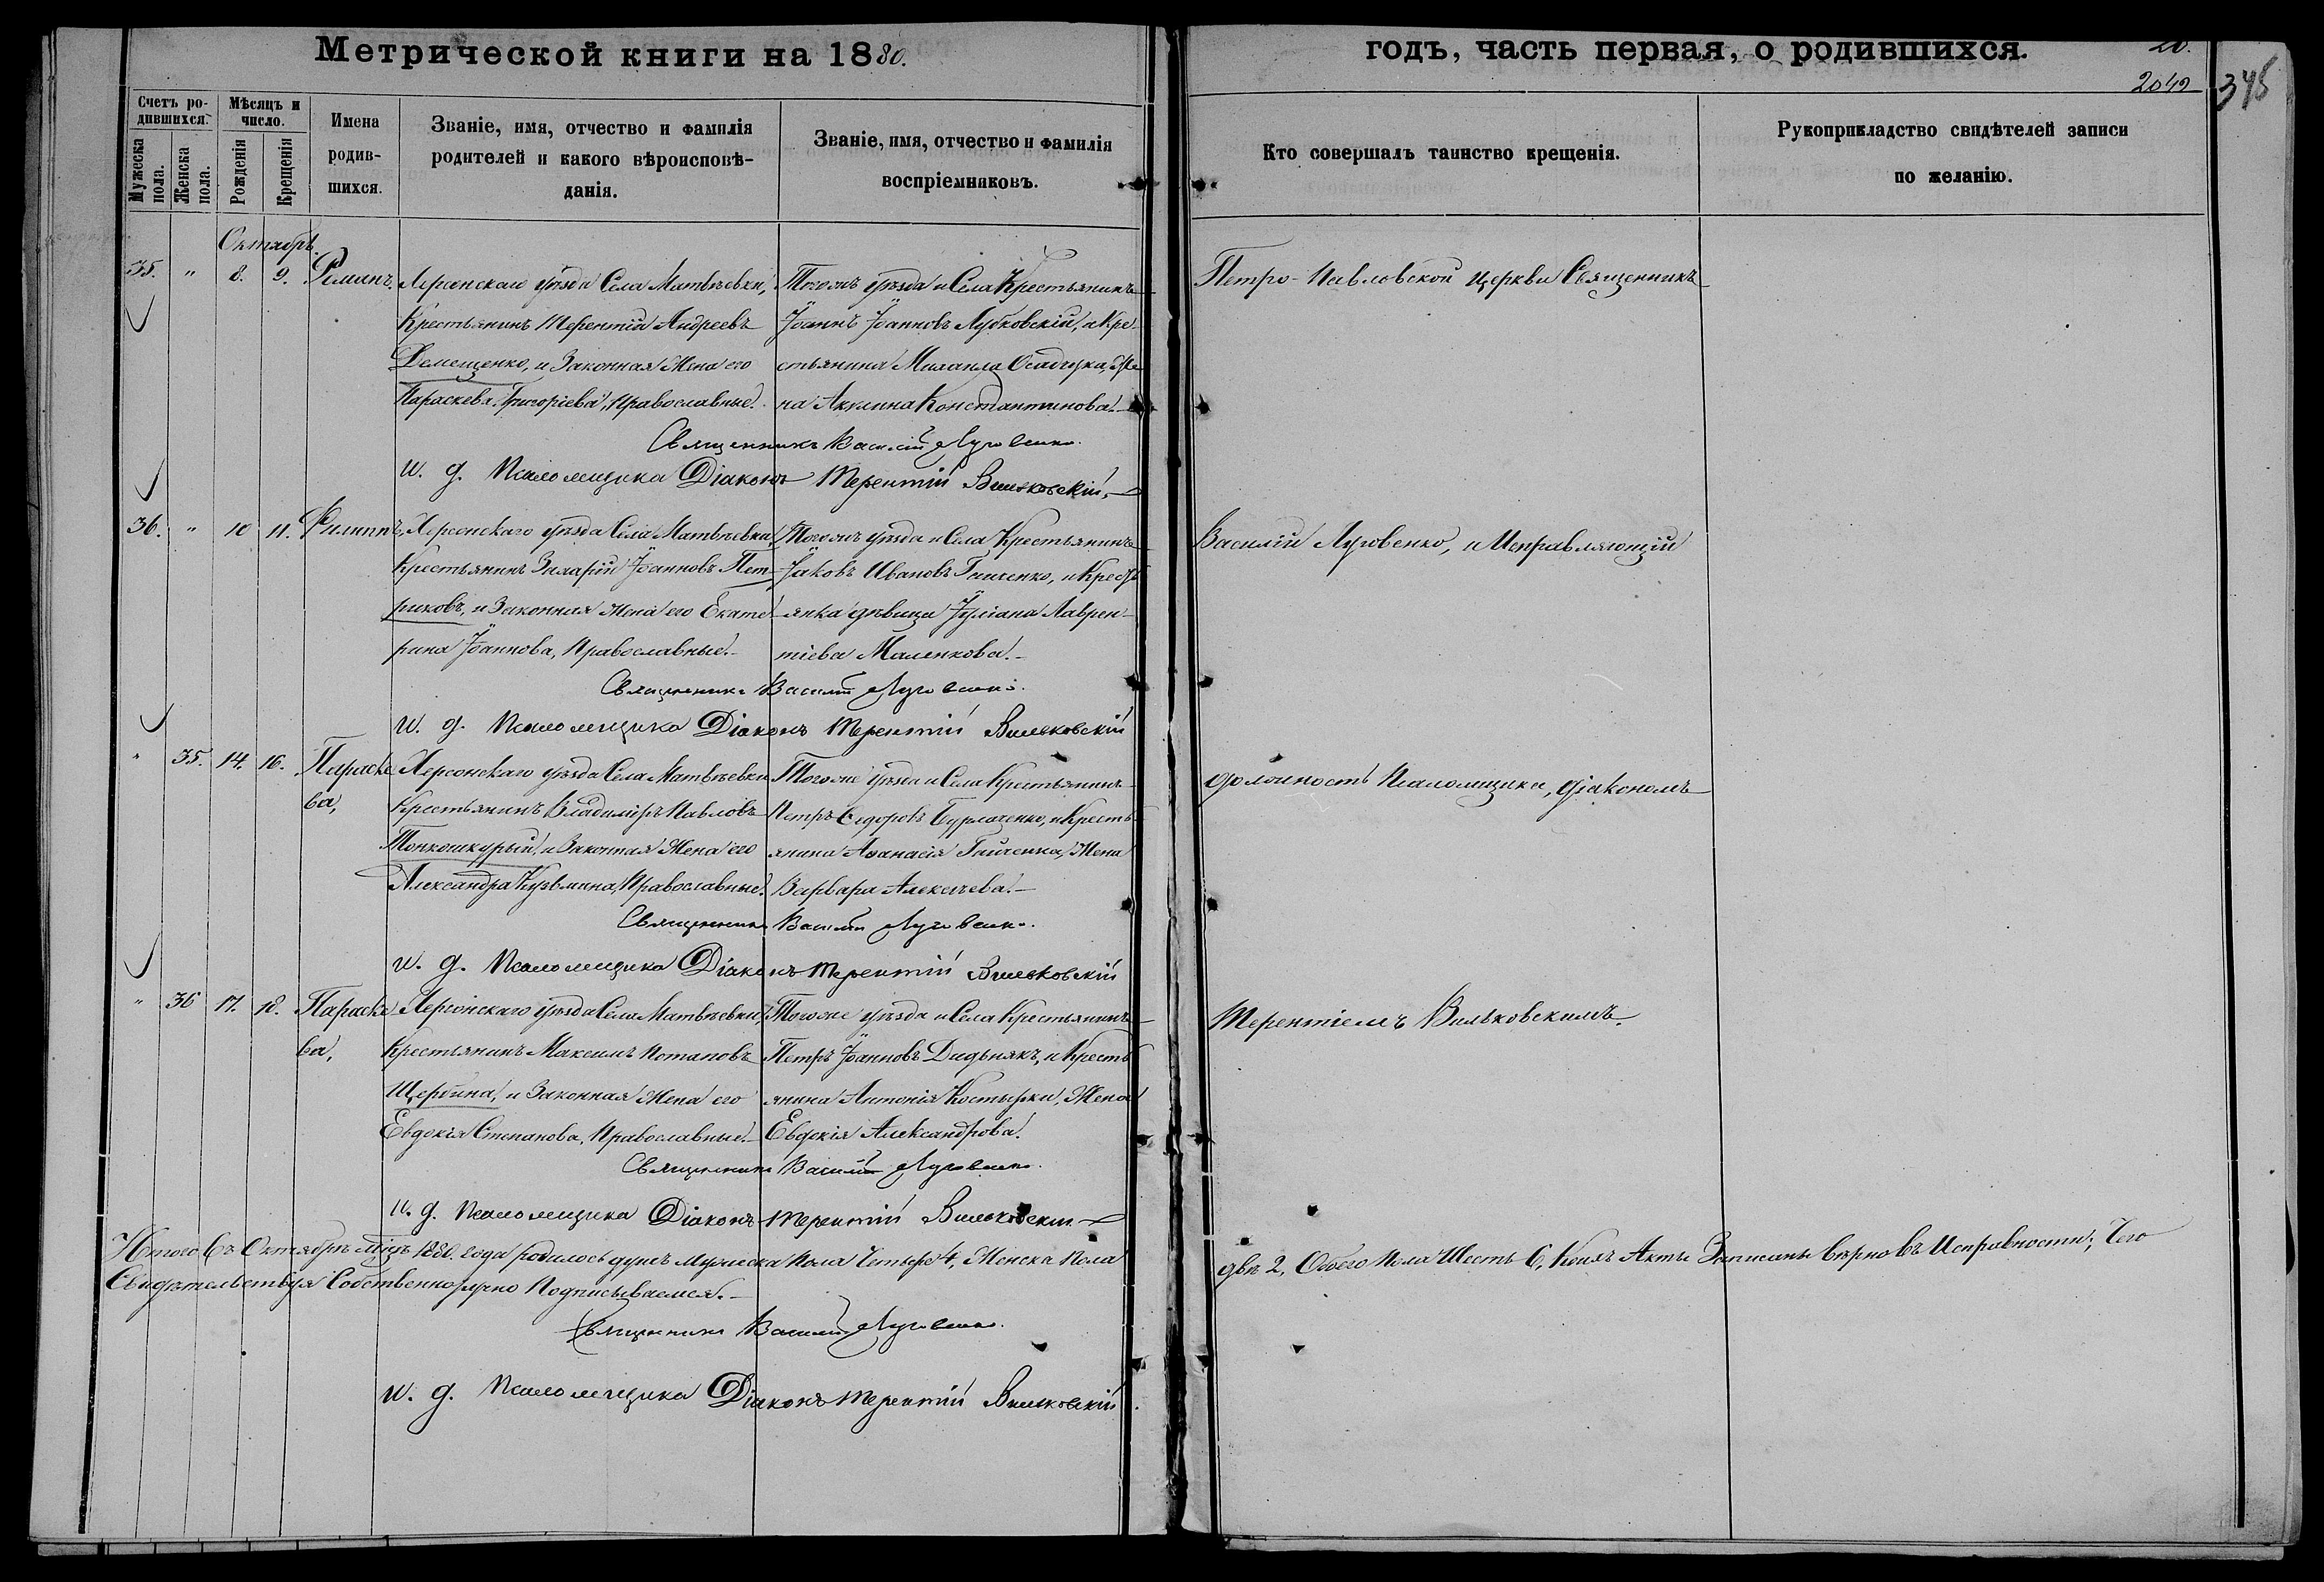 Метрической книги на 1880.
Счетъ ро-
дившихся.
Мѣсяцъ и
число.
Мужеска
пола.
Женска
пола.
Рожденія
Крещенія
Имена
родив-
шихся.
Званіе, имя, отчество и фамилія
родителей и какого вѣроисповѣ-
данія.
Званіе, имя, отчество и фамилія
воспріемниковъ.
Октябрь.
35. " 8. 9.
Херсонскаго уѣзда Села Матвѣевки,
Крестьянинъ Терентій Андреевъ
Демещенко, и Законная Жена его
Параскева Григоріева, Православные.
Тогожъ уѣзда и Села Крестьянинъ
Іоаннъ Іоанновъ Лубковскій, и Кре-
стьянина Михаила Осадчука, Же-
на Акулина Константинова.
Священникъ Василій Луговенко.
И. д. Псаломщика Діаконъ Терентій Вильковскій.
36. " 10 11. Филиппъ,
Херсонскаго уѣзда Села Матвѣевки,
Крестьянинъ Захарій Іоанновъ Пет-
риковъ, и Законная Жена его Екате-
рина Іоаннова, Православные.
Тогожъ уѣзда и Села Крестьянинъ
Іаковъ Ивановъ Гайченко, и Кресть-
янка дѣвица Іуліана Лаврен-
тіева Маленкова.
Священникъ Василій Луговенко.
И. д. Псаломщика Діаконъ Терентій Вильковскій
" 35. 14. 16. Параске
ва,
Херсонскаго уѣзда Села Матвѣевки
Крестьянинъ Владиміръ Павловъ
Тонкошкурый, и Законная Жена его
Александра Кузьмина, Православные.
Тогоже уѣзда и Села Крестьянинъ
Петръ Сидоровъ Бурлаченко, и Кресть-
янина Аѳанасія Гайченка, Жена
Варвара Алексѣева.
Священникъ Василій Луговенко.
И. д. Псаломщика Діаконъ Терентій Вильковскій
" 36 17. 18. Параске
ва,
Херсонскаго уѣзда Села Матвѣевки,
Крестьянинъ Максимъ Потаповъ
Щербина, и Законная Жена его
Евдокія Степанова, Православные.
Тогоже уѣзда и Села Крестьянинъ
Петръ Іоанновъ Дидьнякъ, и Кресть
янина Антонія Костырки, Жена
Евдокія Александрова.
Священникъ Василій Луговенко.
И. д. Псаломщика Діаконъ Терентій Вильковскій
Итого Въ Октябрѣ мцѣ 1880. года родилось душъ мужеска пола Четыре 4, Женска Пола
Свидѣтельствуя Собственноручно Подписываемся.
Священникъ Василій Луговенко.
И. д. Псаломщика Діаконъ Терентій Вильковскій.
годъ, часть первая, о родившихся.
20.
2049
348
Кто совершалъ таинство крещенія.
Рукоприкладство свидѣтелей записи
по желанію.
Петро-Павловской церкви Священникъ
Василій Луговенко, и Исправляющій
должность Псаломщика, Діакономъ
Терентіемъ Вильковскимъ.
двѣ 2, Обоего Пола Шесть 6, Коихъ Акты Записаны вѣрно въ Исправности; Чего